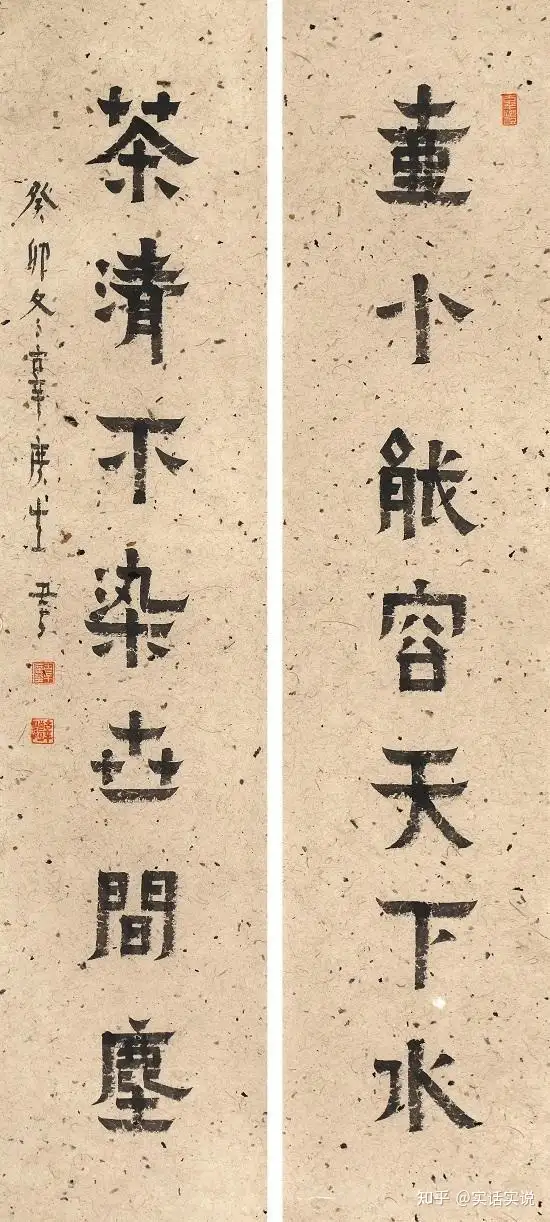 壺小能容天下水
茶清不染世間塵
癸卯冬辜庚生書
知乎 @实话实说